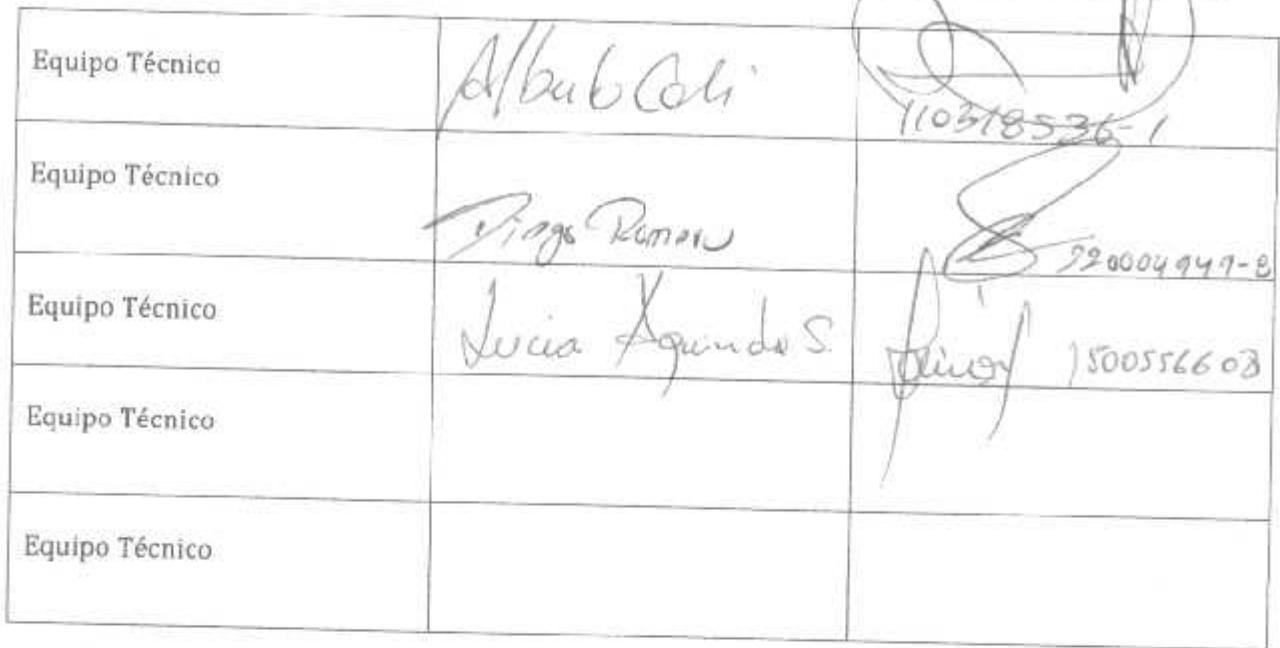 Equipo Técnico
Alberto Celi
110318536-1
Equipo Técnico
Diego Romero
220004947-8
Equipo Técnico
Lucia S.
1500556603
Equipo Técnico
Equipo Técnico